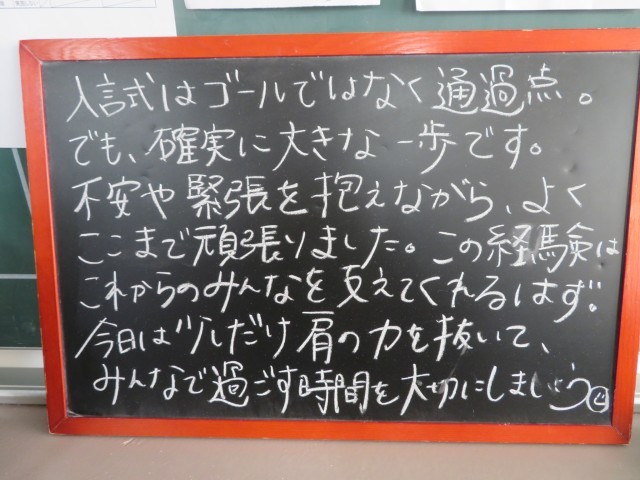 入試はゴールではなく通過点。
でも、確実に大きな一歩です。
不安や緊張を抱えながら、よく
ここまで頑張りました。この経験は
これからのみんなを支えてくれるはず。
今日は少しだけ肩の力を抜いて、
みんなで過ごす時間を大切にしましょう